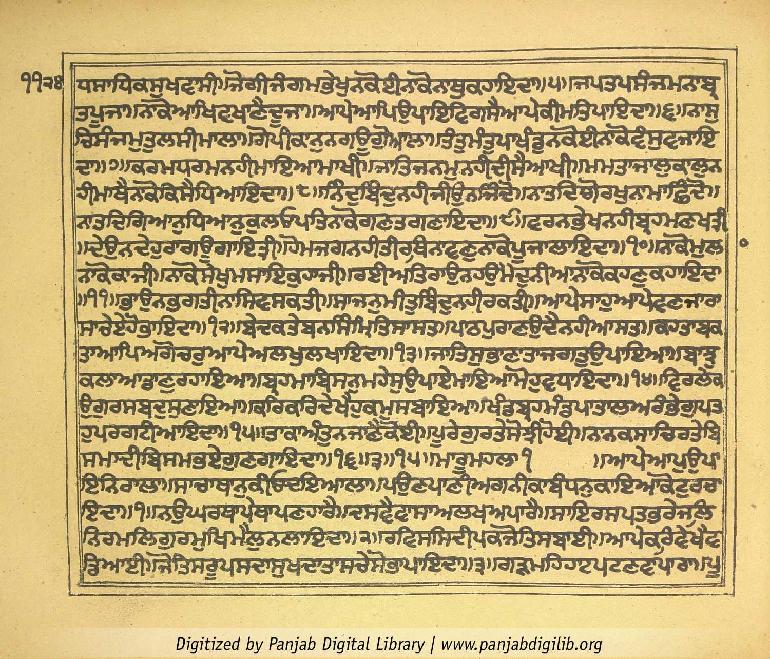 ੧੧੨੪ ਧਸਾਧਿਕਸੁਖਵਾਸੀ॥ਜੋਗੀਜੰਗਮਭੇਖੁਨਕੋਈਨਕੋਨਾਥੁਕਹਾਇਦਾ॥੫॥ਜਪਤਪਸੰਜਮਨਾਬ੍ਰ
ਤਪੂਜਾ॥ਨਾਕੋਆਖਿਵਖਾਣੈਦੂਜਾ॥ਆਪੇਆਪਿਉਪਾਇਵਿਗਸੈਆਪੇਕੀਮਤਿਪਾਇਦਾ॥੬॥ਨਾਸੁ
ਚਿਸੰਜਮੁਤੁਲਸੀਮਾਲਾ॥ਗੋਪੀਕਾਨੁਨਗਊਗੋਆਲਾ॥ਤੰਤੁਮੰਤੁਪਾਖੰਡੁਨਕੋਈਨਾਕੋਵੰਸੁਵਜਾਇ
ਦਾ॥੭॥ਕਰਮਧਰਮਨਹੀਮਾਇਆਮਾਖੀ॥ਜਾਤਿਜਨਮੁਨਹੀਦੀਸੈਆਖੀ॥ਮਮਤਾਜਾਲੁਕਾਲੁਨ
ਹੀਮਾਥੈਨਾਕੋਕਿਸੈਧਿਆਇਦਾ॥੮॥ਨਿੰਦੁਬਿੰਦੁਨਹੀਜੀਉਨਜਿੰਦੋ॥ਨਾਤਦਿਗੋਰਖੁਨਾਮਾਛਿੰਦੋ॥
ਨਾਤਦਿਗਿਆਨੁਧਿਆਨੁਕੁਲਓਪਤਿਨਾਕੋਗਣਤਗਣਾਇਦਾ॥੯॥ਵਰਨਭੇਖਨਹੀਬ੍ਰਹਮਣਖਤ੍ਰੀ
॥ਦੇਉਨਦੇਹੁਰਾਗਊਗਾਇਤ੍ਰੀ॥ਹੋਮਜਗਨਹੀਤੀਰਥਿਨਾਵਣੁਨਾਕੋਪੂਜਾਲਾਇਦਾ॥੧੦॥ਨਾਕੋਮੁਲਾ
ਨਾਕੋਕਾਜੀ॥ਨਾਕੋਸੇਖੁਮਸਾਇਕੁਹਾਜੀ॥ਰਈਅਤਿਰਾਉਨਹਉਮੈਦੁਨੀਆਨਾਕੋਕਹਣੁਕਹਾਇਦਾ
॥੧੧॥ਭਾਉਨਭਗਤੀਨਾਸਿਵਸਕਤੀ॥ਸਾਜਨੁਮੀਤੁਬਿੰਦੁਨਹੀਰਕਤੀ॥ਆਪੇਸਾਹੁਆਪੇਵਣਜਾਰਾ
ਸਾਚੇਏਹੋਭਾਇਦਾ॥੧੨॥ਬੇਦਕਤੇਬਨਸਿੰਮ੍ਰਿਤਿਸਾਸਤ॥ਪਾਠਪੁਰਾਣਉਦੈਨਹੀਆਸਤ॥ਕਹਤਾਬਕ
ਤਾਆਪਿਅਗੋਚਰੁਆਪੇਅਲਖੁਲਖਾਇਦਾ॥੧੩॥ਜਾਤਿਸੁਭਾਣਤਾਜਗਤੁਉਪਾਇਆ॥ਬਾਝੁ
ਕਲਾਆਡਾਣੁਰਹਾਇਆ॥ਬ੍ਰਹਮਾਬਿਸਨੁਮਹੇਸੁਉਪਾਏਮਾਇਆਮੋਹੁਵਧਾਇਦਾ॥੧੪॥ਵਿਰਲੇਕ
ਉਗੁਰਸਬਦੁਸੁਣਾਇਆ॥ਕਰਿਕਰਿਦੇਖੈਹੁਕਮੁਸਬਾਇਆ॥ਖੰਡਬ੍ਰਹਮੰਡਪਾਤਾਲਅਰੰਭੇਗੁਪਤ
ਹੁਪਰਗਟੀਆਇਦਾ॥੧੫॥ਤਾਕਾਅੰਤੁਨਜਾਣੈਕੋਈ॥ਪੂਰੇਗੁਰਤੇਸੋਝੀਹੋਈ॥ਨਾਨਕਸਾਚਿਰਤੇਬਿ
ਸਮਾਦੀਬਿਸਮਭਏਗੁਣਗਾਇਦਾ॥੧੬॥੩॥੧੫॥ਮਾਰੂਮਹਲਾ੧ ॥ਆਪੇਆਪੁਉਪਾ
ਇਨਿਰਾਲਾ॥ਸਾਚਾਥਾਨੁਕੀਓਦਇਆਲਾ॥ਪਉਣਪਾਣੀਅਗਨੀਕਾਬੰਧਨੁਕਾਇਆਕੋਟੁਰਚਾ
ਇਦਾ॥੧॥ਨਉਘਰਥਾਪੇਥਾਪਣਹਾਰੈ॥ਦਸਵੈਵਾਸਾਅਲਖਅਪਾਰੈ॥ਸਾਇਰਸਪਤਭਰੇਜਲਿ
ਨਿਰਮਲਿਗੁਰਮੁਖਿਮੈਲੁਨਲਾਇਦਾ॥੨॥ਰਵਿਸਸਿਦੀਪਕਜੋਤਿਸਬਾਈ॥ਆਪੇਕਰਿਵੇਖੈਵ
ਡਿਆਈ॥ਜੋਤਿਸਰੂਪਸਦਾਸੁਖਦਾਤਾਸਚੇਸੋਭਾਪਾਇਦਾ॥੩॥ਗੜਮਹਿਹਾਟਪਟਣਵਾਪਾਰਾ॥ਪੂ
Digitized by Panjab Digital Library | www.panjabdigilib.org